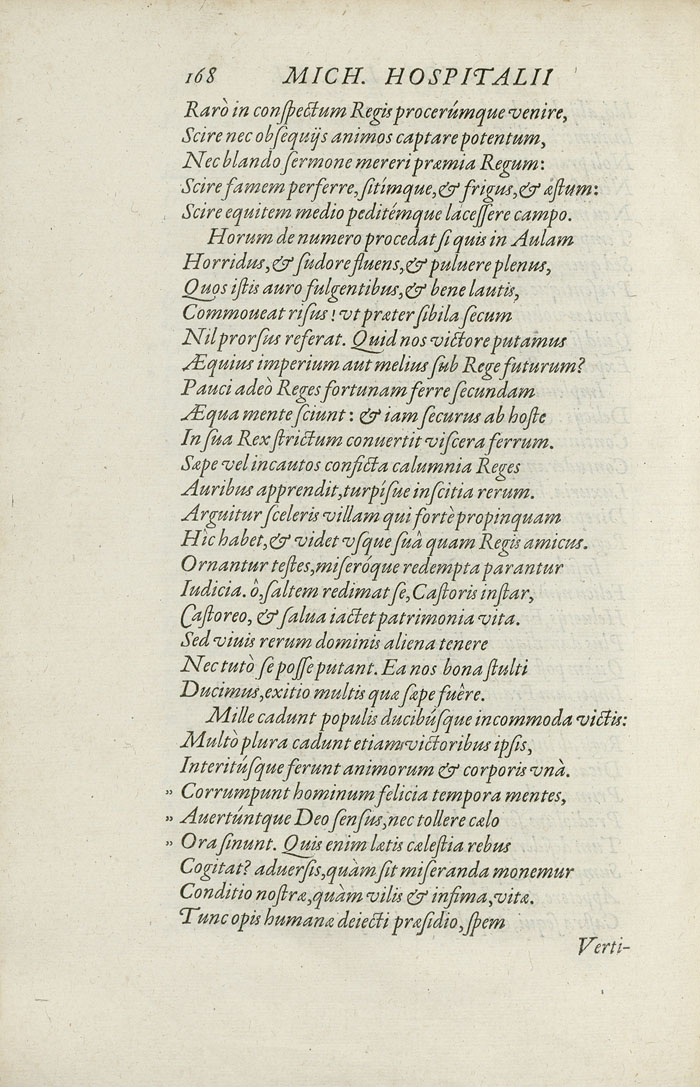 168 MICH. HOSPITALII
Rarò in conſpectum Regis procerúmque venire,
Scire nec obſequijs animos captare potentum,
Nec blando ſermone mereri præmia Regum:
Scire famem perferre, ſitímque, & frigus, & æſtum:
Scire equitem medio peditémque laceſſere campo.
Horum de numero procedat ſi quis in Aulam
Horridus, & ſudore fluens, & puluere plenus,
Quos iſtis auro fulgentibus, & bene lautis,
Commoueat riſus! vt præter ſibila ſecum
Nil prorſus referat. Quid nos victore putamus
Æquius imperium aut melius ſub Rege futurum?
Pauci adeò Reges fortunam ferre ſecundam
Æqua mente ſciunt: & iam ſecurus ab hoſte
In ſua Rex ſtrictum conuertit viſcera ferrum.
Sæpe vel incautos conficta calumnia Reges
Auribus apprendit, turpíſue inſcitia rerum.
Arguitur ſceleris villam qui fortè propinquam
Hîc habet, & videt vſque ſuâ quam Regis amicus.
Ornantur teſtes, miſeróque redempta parantur
Iudicia. ô, ſaltem redimat ſe, Caſtoris inſtar,
Caſtoreo, & ſalua iactet patrimonia vita.
Sed viuis rerum dominis aliena tenere
Nec tutò ſe poſſe putant. Ea nos bona ſtulti
Ducimus, exitio multis quæ ſæpe fuêre.
Mille cadunt populis ducibúſque incommoda victis:
Multò plura cadunt etiam victoribus ipſis,
Interitúſque ferunt animorum & corporis vnà.
„ Corrumpunt hominum felicia tempora mentes,
„ Auertúntque Deo ſenſus, nec tollere cælo
„ Ora ſinunt. Quis enim lætis cæleſtia rebus
Cogitat? aduerſis, quàm ſit miſeranda monemur
Conditio noſtræ, quàm vilis & infima, vitæ.
Tunc opis humanæ deiecti præſidio, ſpem
Verti-